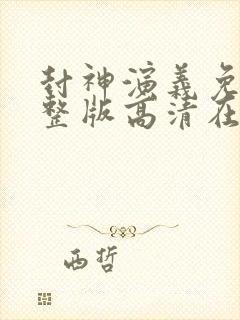 封神演义免
整版高清在
西哲